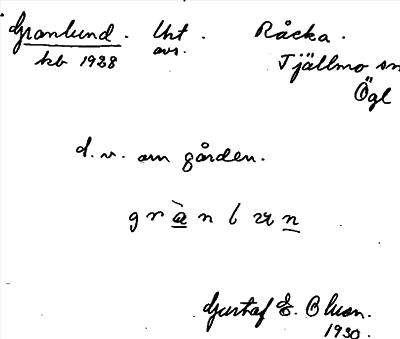 Granlund. Uht. Råcka.
kb 1938 avs. Tjällmo sn
Ögl
d. v. om gården.
g r à n l u n
Gustaf E. Olson.
1930.